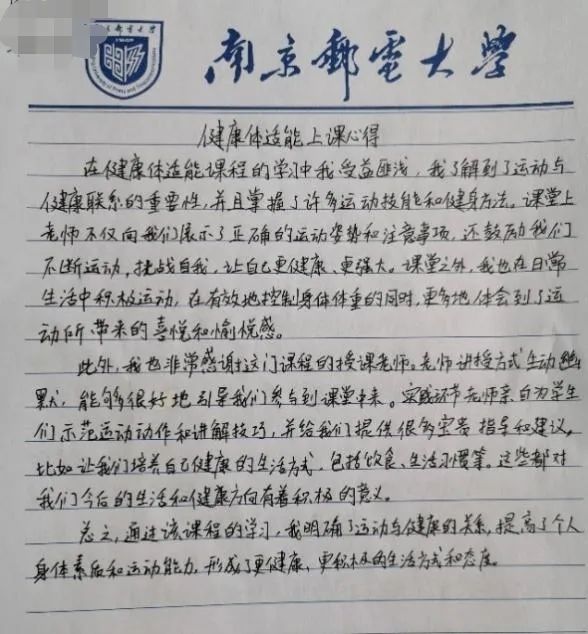 南京邮电大学
南京郵電大學
健康体适能上课心得
在健康体适能课程的学习中我受益匪浅，我了解到了运动与
健康联系的重要性，并且掌握了许多运动技能和健身方法。课堂上
老师不仅向我们展示了正确的运动姿势和注意事项，还鼓励我们
不断运动，挑战自我，让自己更健康、更强大。课堂之外，我也在日常
生活中积极运动，在有效地控制身体体重的同时，更多地体会到了运
动所带来的喜悦和愉悦感。
此外，我也非常感谢这门课程的授课老师。老师讲授方式生动幽
默，能够很好地引导我们参与到课堂中来。实践环节老师亲自为学生
们示范运动动作和讲解技巧，并给我们提供很多宝贵指导和建议。
比如让我们培养自己健康的生活方式，包括饮食、生活习惯等。这些都对
我们今后的生活和健康方向有着积极的意义。
总之，通过该课程的学习，我明确了运动与健康的关系，提高了个人
身体素质和运动能力，形成了更健康、更积极的生活方式和态度。